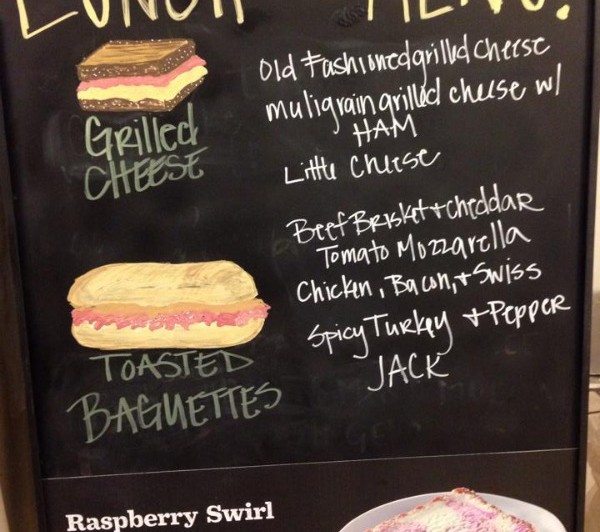 LUNCH MENU!
Grilled
CHEESE
Old Fashioned grilled cheese
muligrain grilled cheese w/
HAM
Little Cheese
TOASTED
BAGUETTES
Beef Brisket + cheddar
Tomato Mozzarella
Chicken, Bacon, + Swiss
Spicy Turkey + Pepper
JACK
Raspberry Swirl